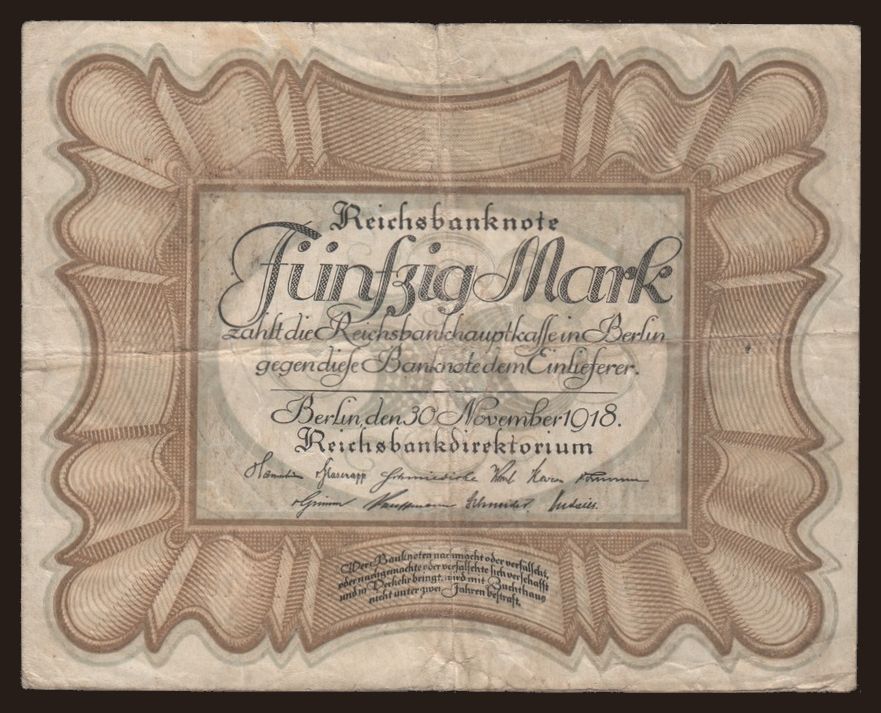 Reichsbanknote
Fünfzig Mark
zahlt die Reichsbankhauptkasse in Berlin
gegen diese Banknote dem Einlieferer.
Berlin, den 30 November 1918.
Reichsbankdirektorium
Havenstein v Glasenapp Schmiedicke Korn Maron
v Grimm Kauffmann Schneider Budczies
Wer Banknoten nachmacht oder verfälscht,
oder nachgemachte oder verfälschte sich verschafft
und in Verkehr bringt, wird mit Zuchthaus
nicht unter zwei Jahren bestraft.